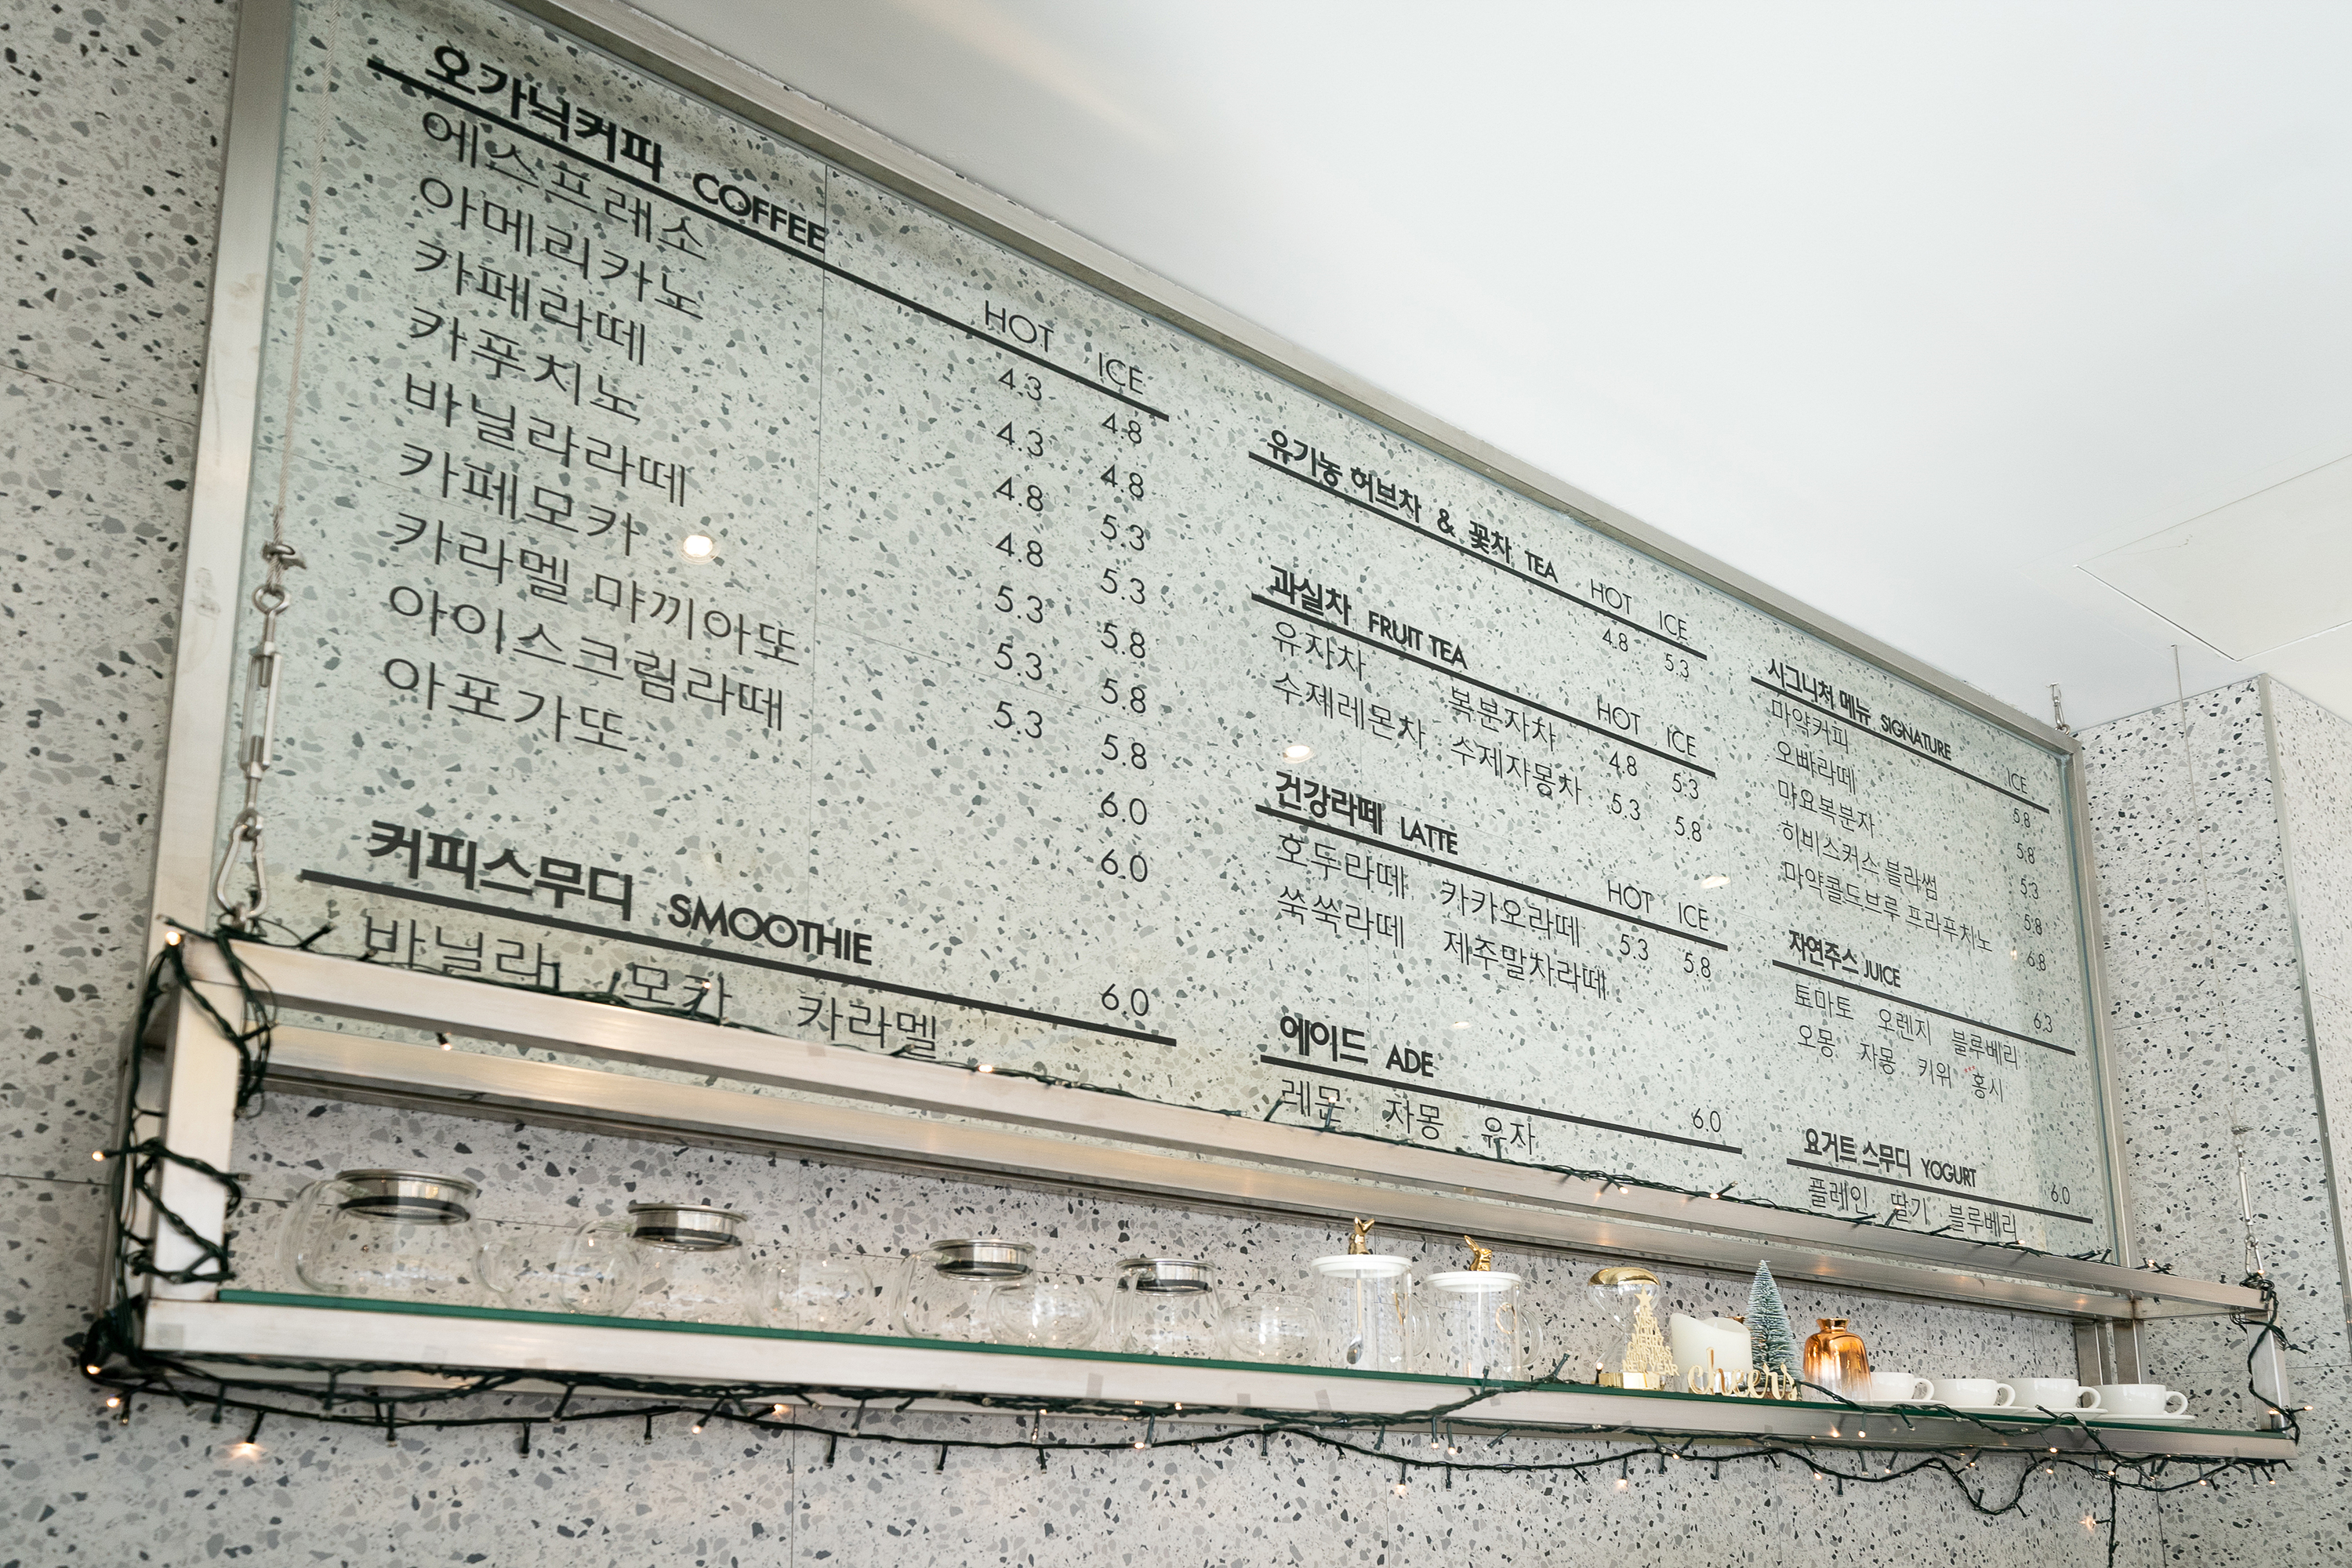 오가닉커피 COFFEE HOT ICE
에스프레소 4.3 4.8
아메리카노 4.3 4.8
카페라떼 4.8 5.3
카푸치노 4.8 5.3
바닐라라떼 5.3 5.8
카페모카 5.3 5.8
카라멜 마끼아또 5.3 5.8
아이스크림라떼 6.0
아포가또 6.0
커피스무디 SMOOTHIE 6.0
바닐라 모카 카라멜
유기농 허브차 & 꽃차 TEA HOT ICE
4.8 5.3
과실차 FRUIT TEA HOT ICE
유자차 복분자차 4.8 5.3
수제레몬차 수제자몽차 5.3 5.8
건강라떼 LATTE HOT ICE
호두라떼 카카오라떼 5.3 5.8
쑥쑥라떼 제주말차라떼
에이드 ADE 6.0
레몬 자몽 유자
시그니처 메뉴 SIGNATURE ICE
마약커피 5.8
오빠라떼 5.8
마요복분자 5.3
히비스커스 블라썸 5.8
마약콜드브루 프라푸치노 6.8
자연주스 JUICE 6.3
토마토 오렌지 블루베리
오몽 자몽 키위 홍시
요거트 스무디 YOGURT 6.0
플레인 딸기 블루베리
cheers